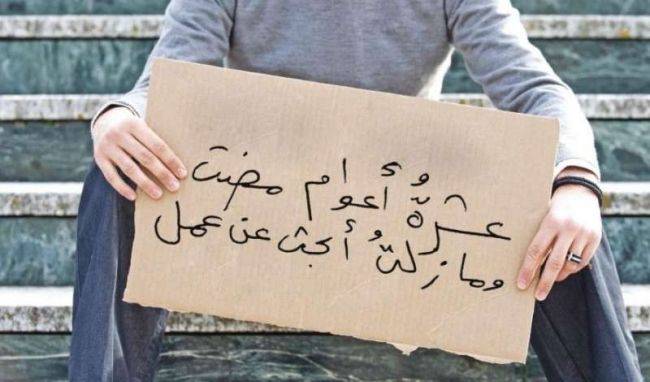 عشرةُ أعوام مضت
وما زلتُ أبحث عن عمل